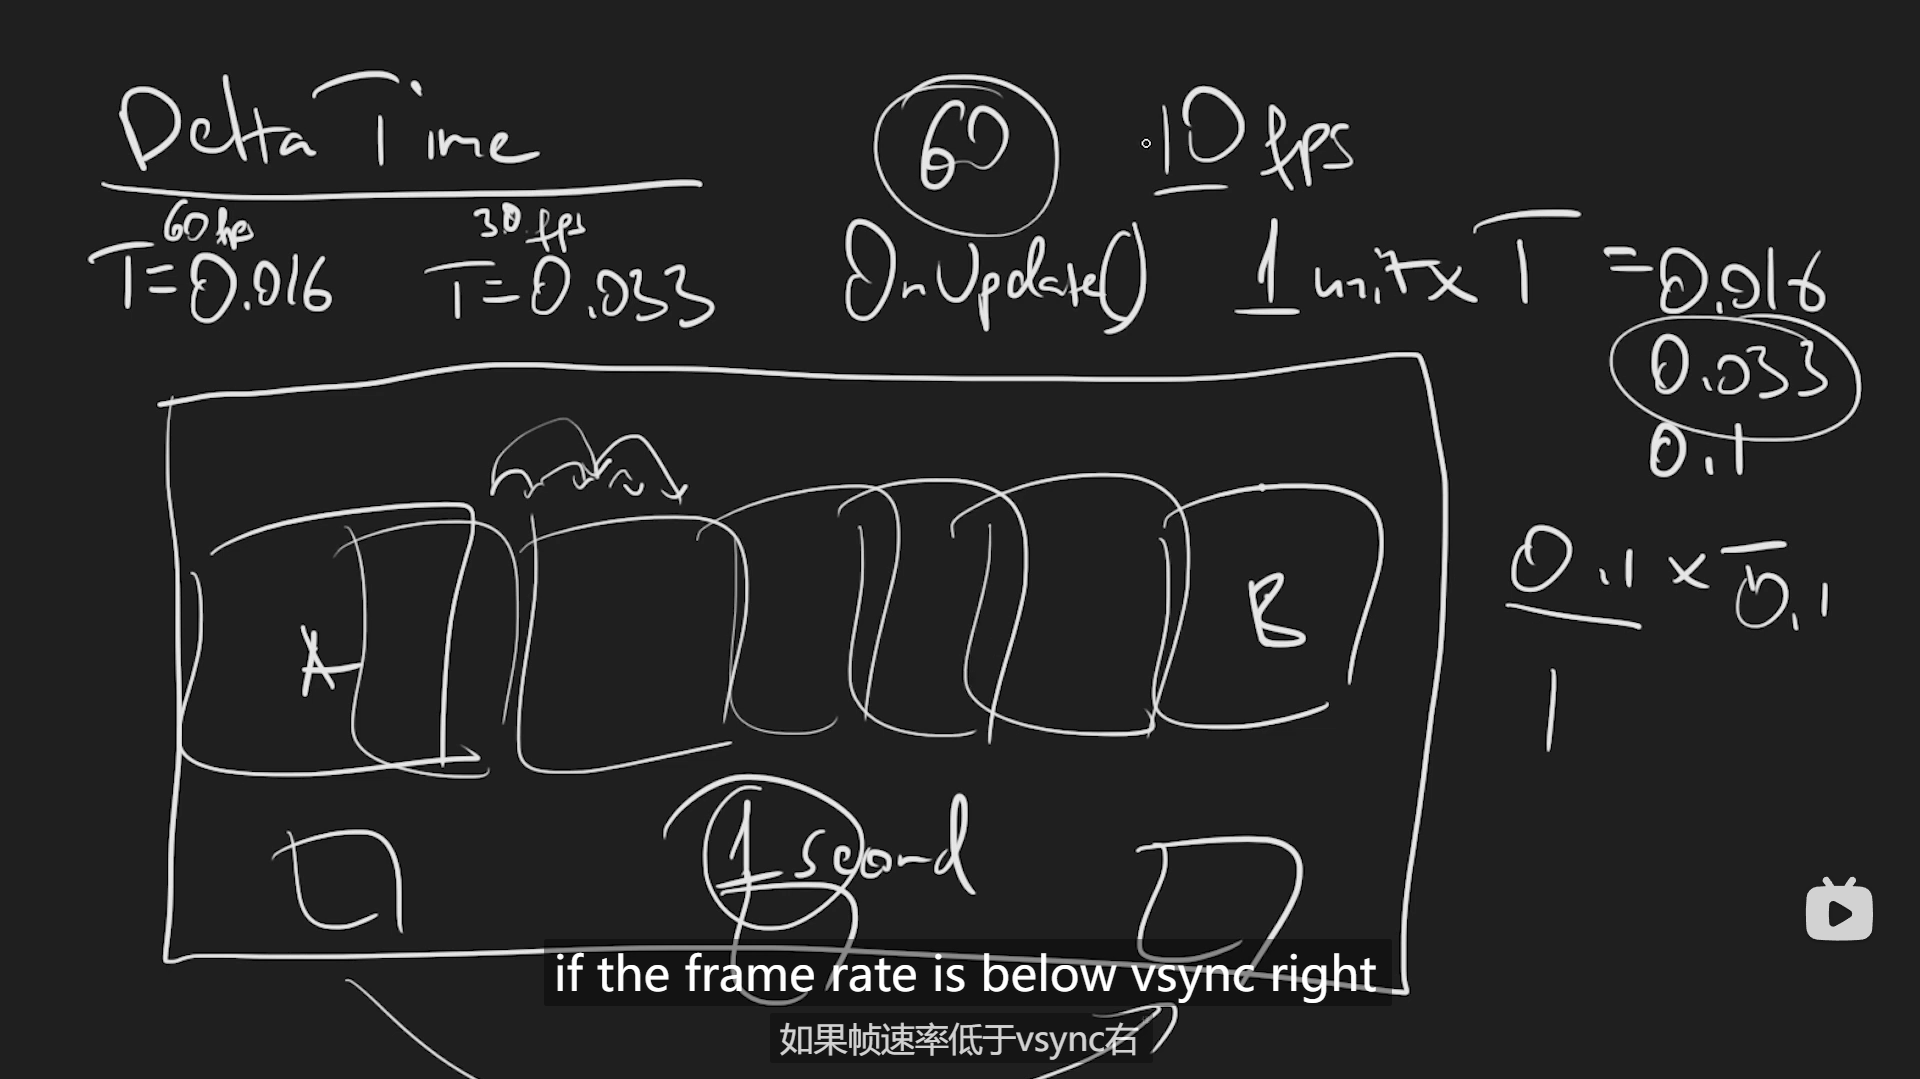 Delta Time
60 10 fps
60 fps 30 fps
T=0.016 T=0.033 OnUpdate() 1 unit x T =0.016
0.033
0.1
0.1 x 0.1
A B
1
1 second
if the frame rate is below vsync right
如果帧速率低于vsync右